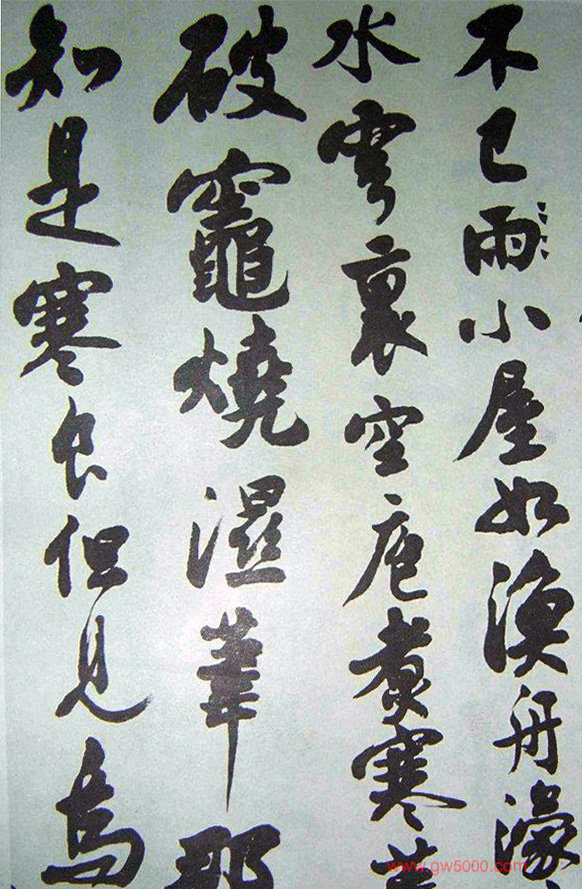 不已雨小屋如漁舟濛
水雲裏空庖煮寒
破竈燒濕葦那
知是寒食但見烏
www.gw5000.com